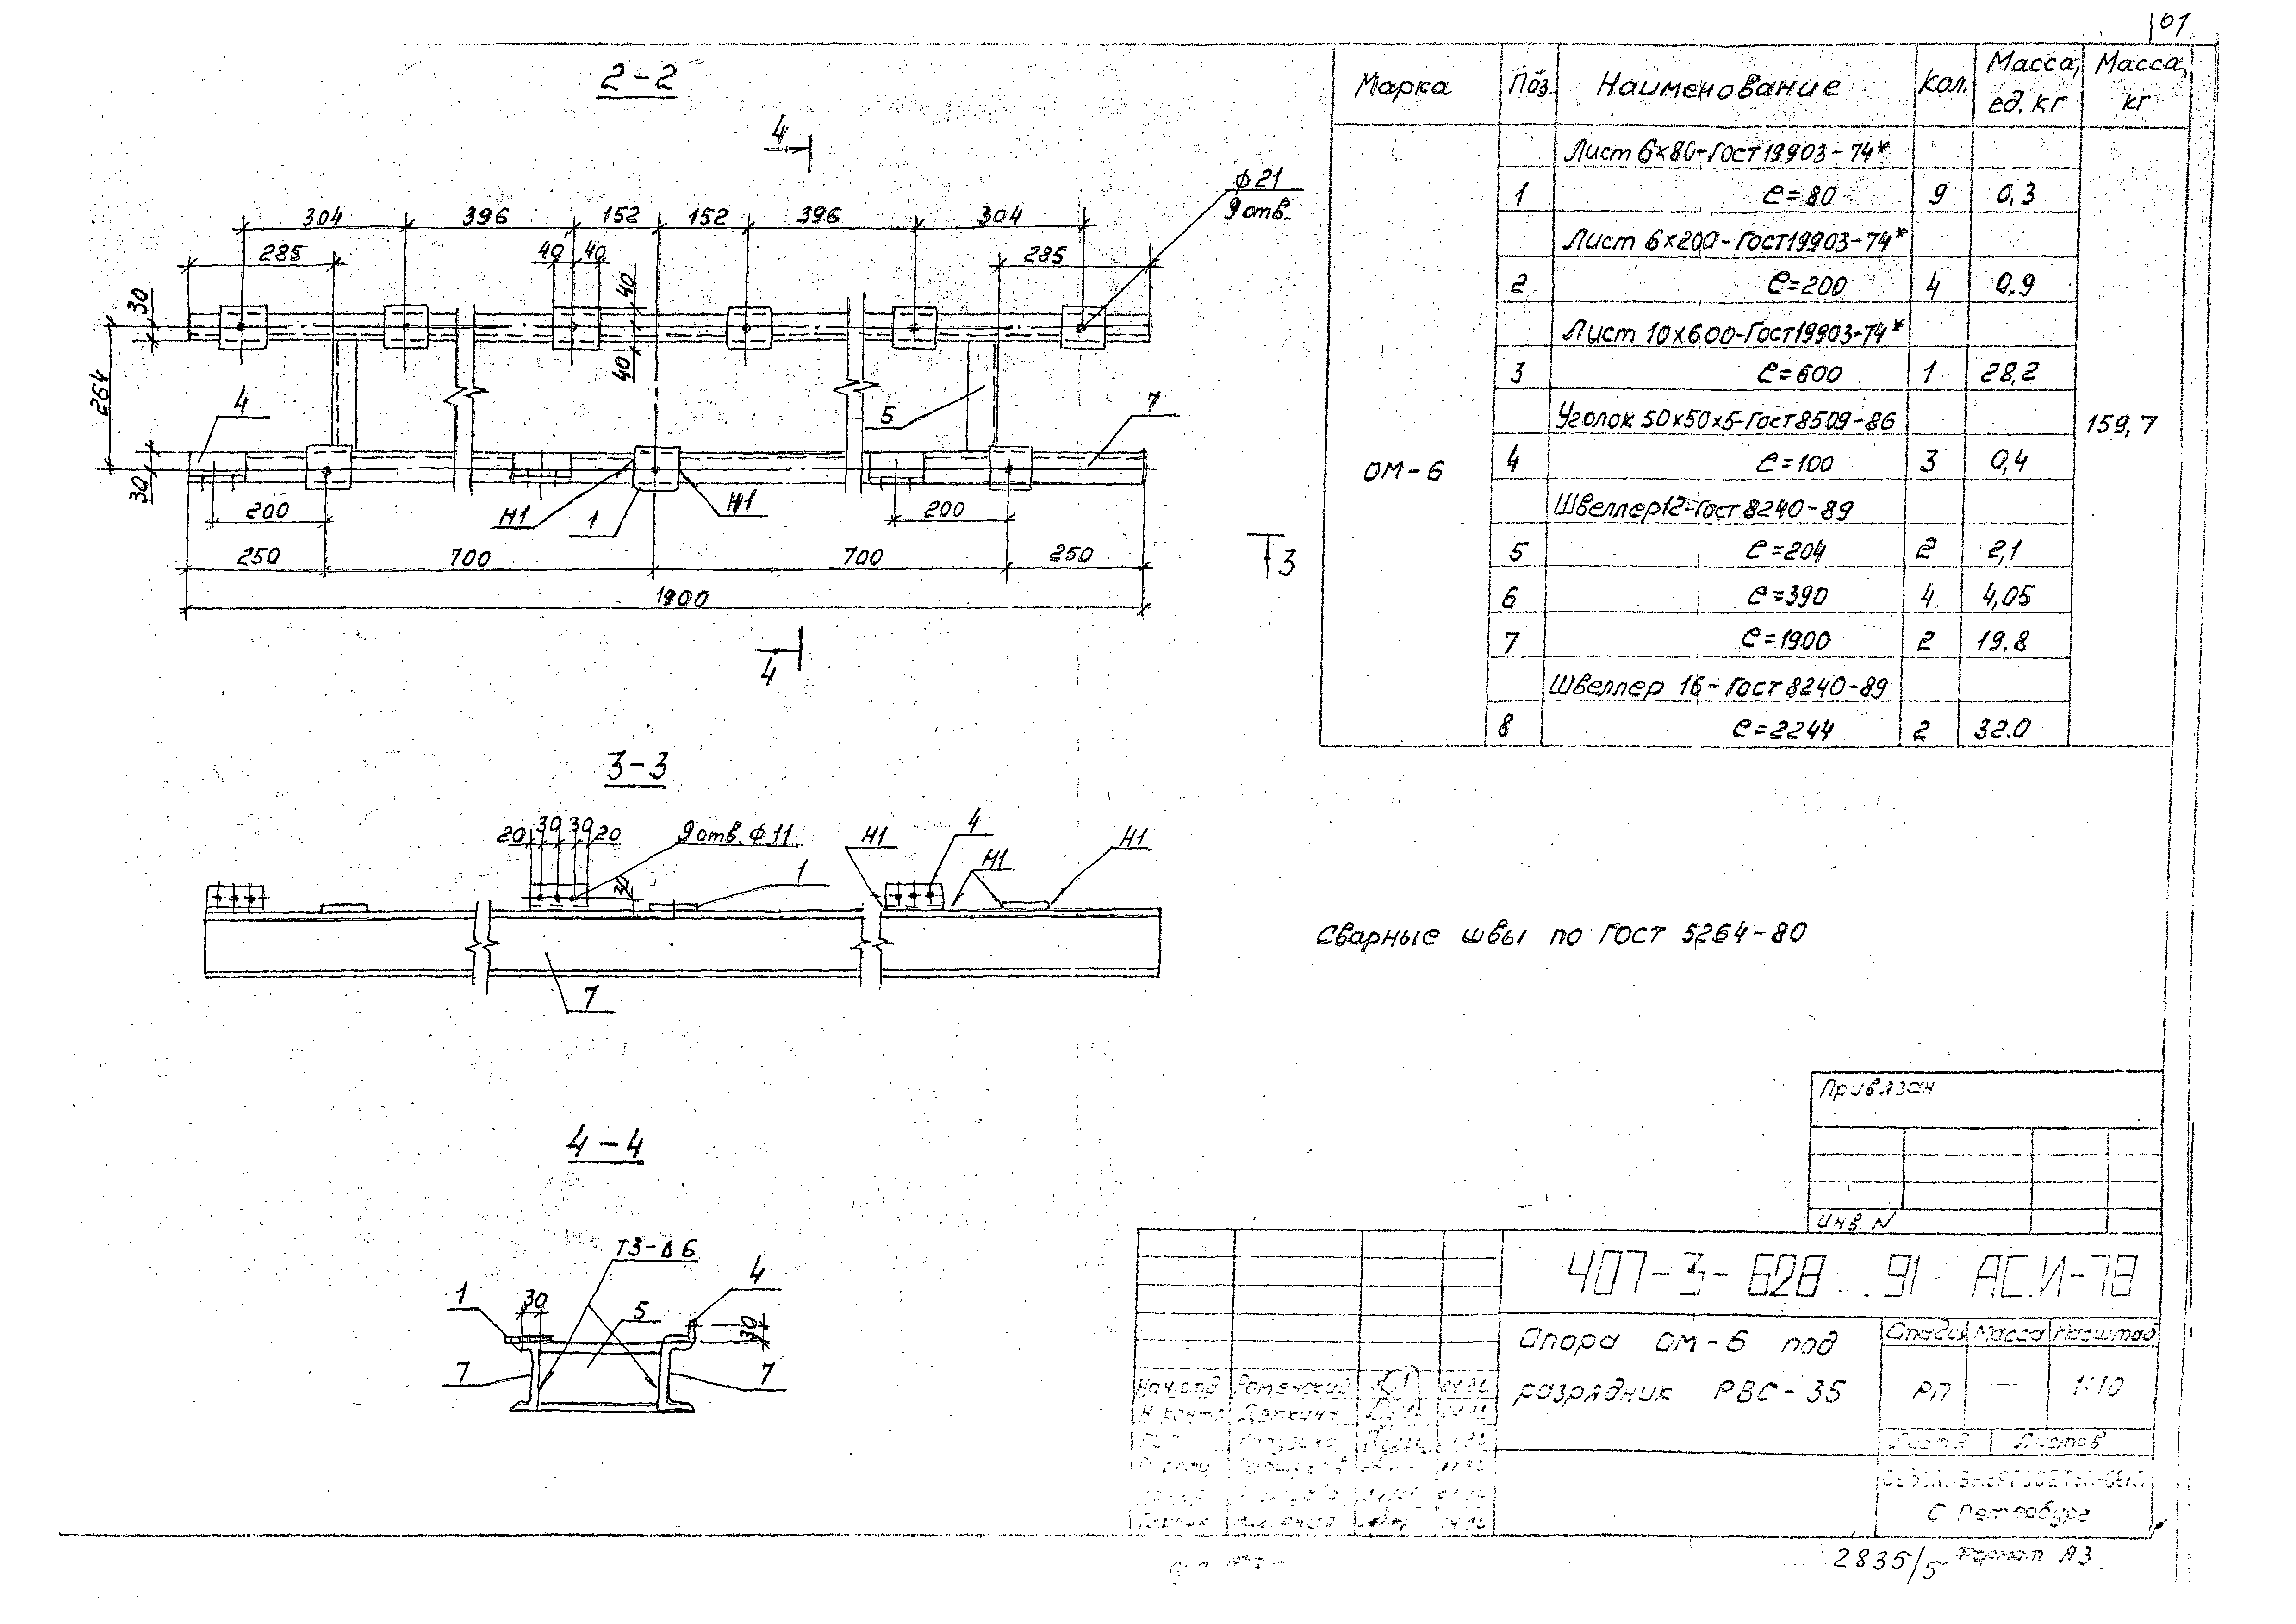 61
2-2
4
ϕ21
9 отв.
304 396 152 152 396 304
285 40 40 285
30
40
40
264
4
5
7
30
200 Н1 1 Н1 200
250 700 700 250
1900
3
4
Марка Поз. Наименование Кол. Масса, ед. кг Масса, кг
Лист 6х80-Гост 19903-74*
1 ℓ=80 9 0,3
Лист 6х200-Гост 19903-74*
2 ℓ=200 4 0,9
Лист 10х600-Гост 19903-74*
3 ℓ=600 1 28,2
Уголок 50х50х5-Гост 8509-86
159,7
ОМ-6
4 ℓ=100 3 0,4
Швеллер 12-Гост 8240-89
5 ℓ=204 2 2,1
6 ℓ=390 4 4,05
7 ℓ=1900 2 19,8
Швеллер 16-Гост 8240-89
8 ℓ=2244 2 32.0
3-3
20 30 30 20 9 отв. ϕ11 Н1 4 Н1
1 Н1
30
7
Сварные швы по ГОСТ 5264-80
4-4
Т3-Δ6
1 30 5 4
30
7 7
Привязан
Инв. N
407-3-628 .91 АС.И-78
Опора ОМ-6 под
разрядник РВС-35
Стадия Масса Масштаб
РП — 1:10
Лист Листов
Нач.отд Роменский
Н контр
С Петербург
2835/5 Формат А3